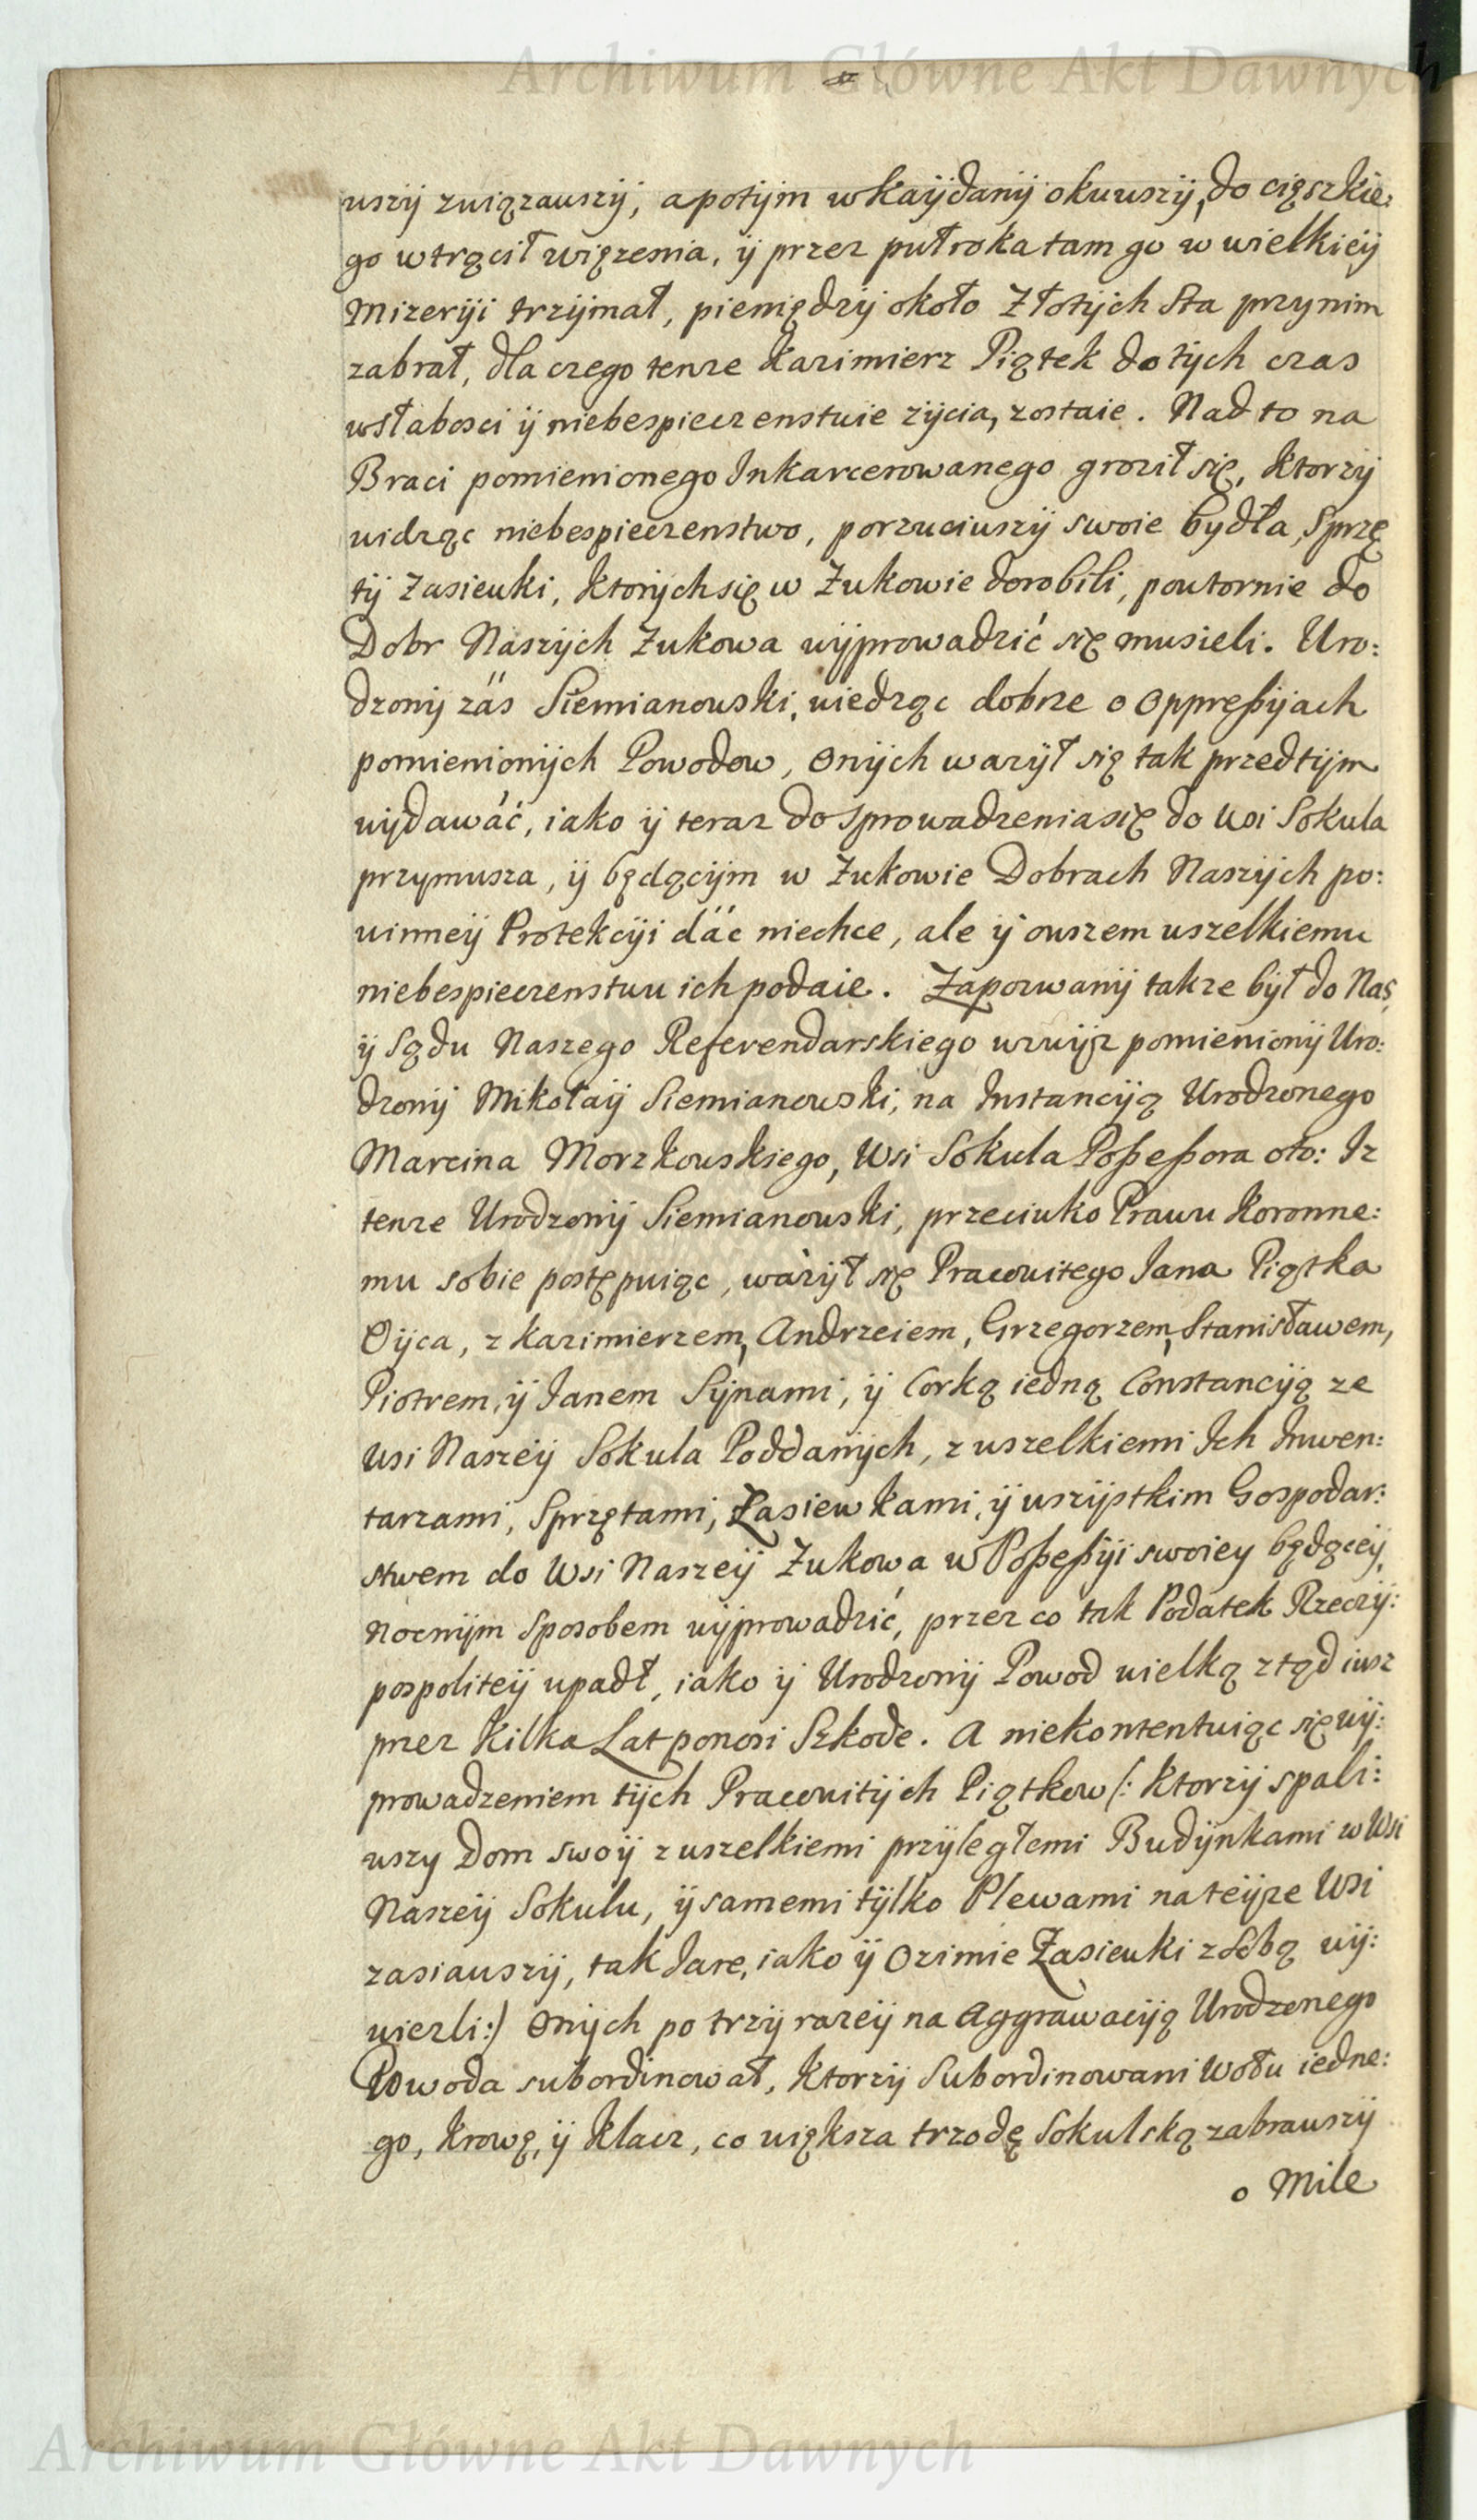 Archiwum Główne Akt Dawnych
uszÿ związauszÿ, apotÿm wkaÿdanÿ okuuszÿ, do cięszkie:
go wtrącił więzenia, ÿ przez puł roka tam go w wielkieÿ
Mizerÿi trzÿmał, pieniędzÿ około Złotÿch Sta przynim
zabrał, dla czego tenze Kazimierz Piątek do tÿch czas
wsłabosci ÿ niebespieczenstwie zÿcia, zostaie. Nad to na
Braci pomienionego Inkarcerowanego groził się, Ktorzÿ
widząc niebespieczenstwo, porzuciuszÿ swoie bydła, Sprzę
tÿ Zasieuki, Ktorÿch się w Żukowie dorobili, poutornie do
Dobr Naszÿch Żukowa uÿprowadzić się musieli. Uro:
dzonÿ zäs Siemianouski, uiedząc dobrze o Oppreßÿjach
pomienionÿch Powodow, Onÿch wazÿł się tak przedtÿm
uÿdawáć, iako ÿ teraz do Sprowadzenia się do Wsi Sokula
przymusza, ÿ będącÿm w Żukowie Dobrach Naszÿch po:
uinneÿ Protekcÿi däć niechce, ale ÿ ouszem uszelkiemu
niebespieczenstwu ich podaie. Zapozwanÿ takze bÿł do Nas,
ÿ Sądu Naszego Referendarskiego wzwÿz pomienionÿ Uro:
dzonÿ Mikołaÿ Siemianouski, na Instancÿą Urodzonego
Marcina Morzkouskiego, Wsi Sokula Poßeßora oto: Iz
tenze Urodzonÿ Siemianouski, przeciuko Prawu Koronne:
mu sobie postępuiąc, wazÿł się Pracouitego Jana Piątka
Oÿca, z Kazimierzem, Andrzeiem, Grzegorzem, Stanisławem,
Piotrem, ÿ Janem Sÿnami, ÿ Corką iedną Constancÿą ze
Wsi Naszeÿ Sokula Poddanÿch, z uszelkiemi Ich Inwen:
tarzami, Sprzętami, Zasiewkami, ÿ uszÿstkim Gospodar:
stwem do Wsi Naszeÿ Żukowa w Poßeßÿi swoiey będąceÿ,
Nocnÿm Sposobem uÿprowadzić, przez co tak Podatek Rzeczÿ:
pospoliteÿ upadł, iako ÿ Urodzonÿ Powod uielką ztąd iusz
przez Kilka Lat ponosi Szkode. A niekontentuiąc się uÿ:
prowadzeniem tÿch Pracouitÿch Piątkow (: Ktorzÿ spali:
uszy Dom swoÿ z uszelkiemi przÿległemi Budÿnkami w Wsi
Naszeÿ Sokulu, ÿ samemi tÿlko Plewami na teÿze Wsi
zasiauszÿ, tak Jare, iako ÿ Ozimie Zasieuki z Sobą uÿ:
uiezli:) Onÿch po trzÿ razeÿ na Aggrawacÿą Urodzonego
Powoda subordinował, Ktorzÿ Subordinowani Wołu iedne:
go, Krowę, ÿ Klacz, co uiększa trzodę Sokulską zabrauszÿ
o Mile
Archiwum Główne Akt Dawnych